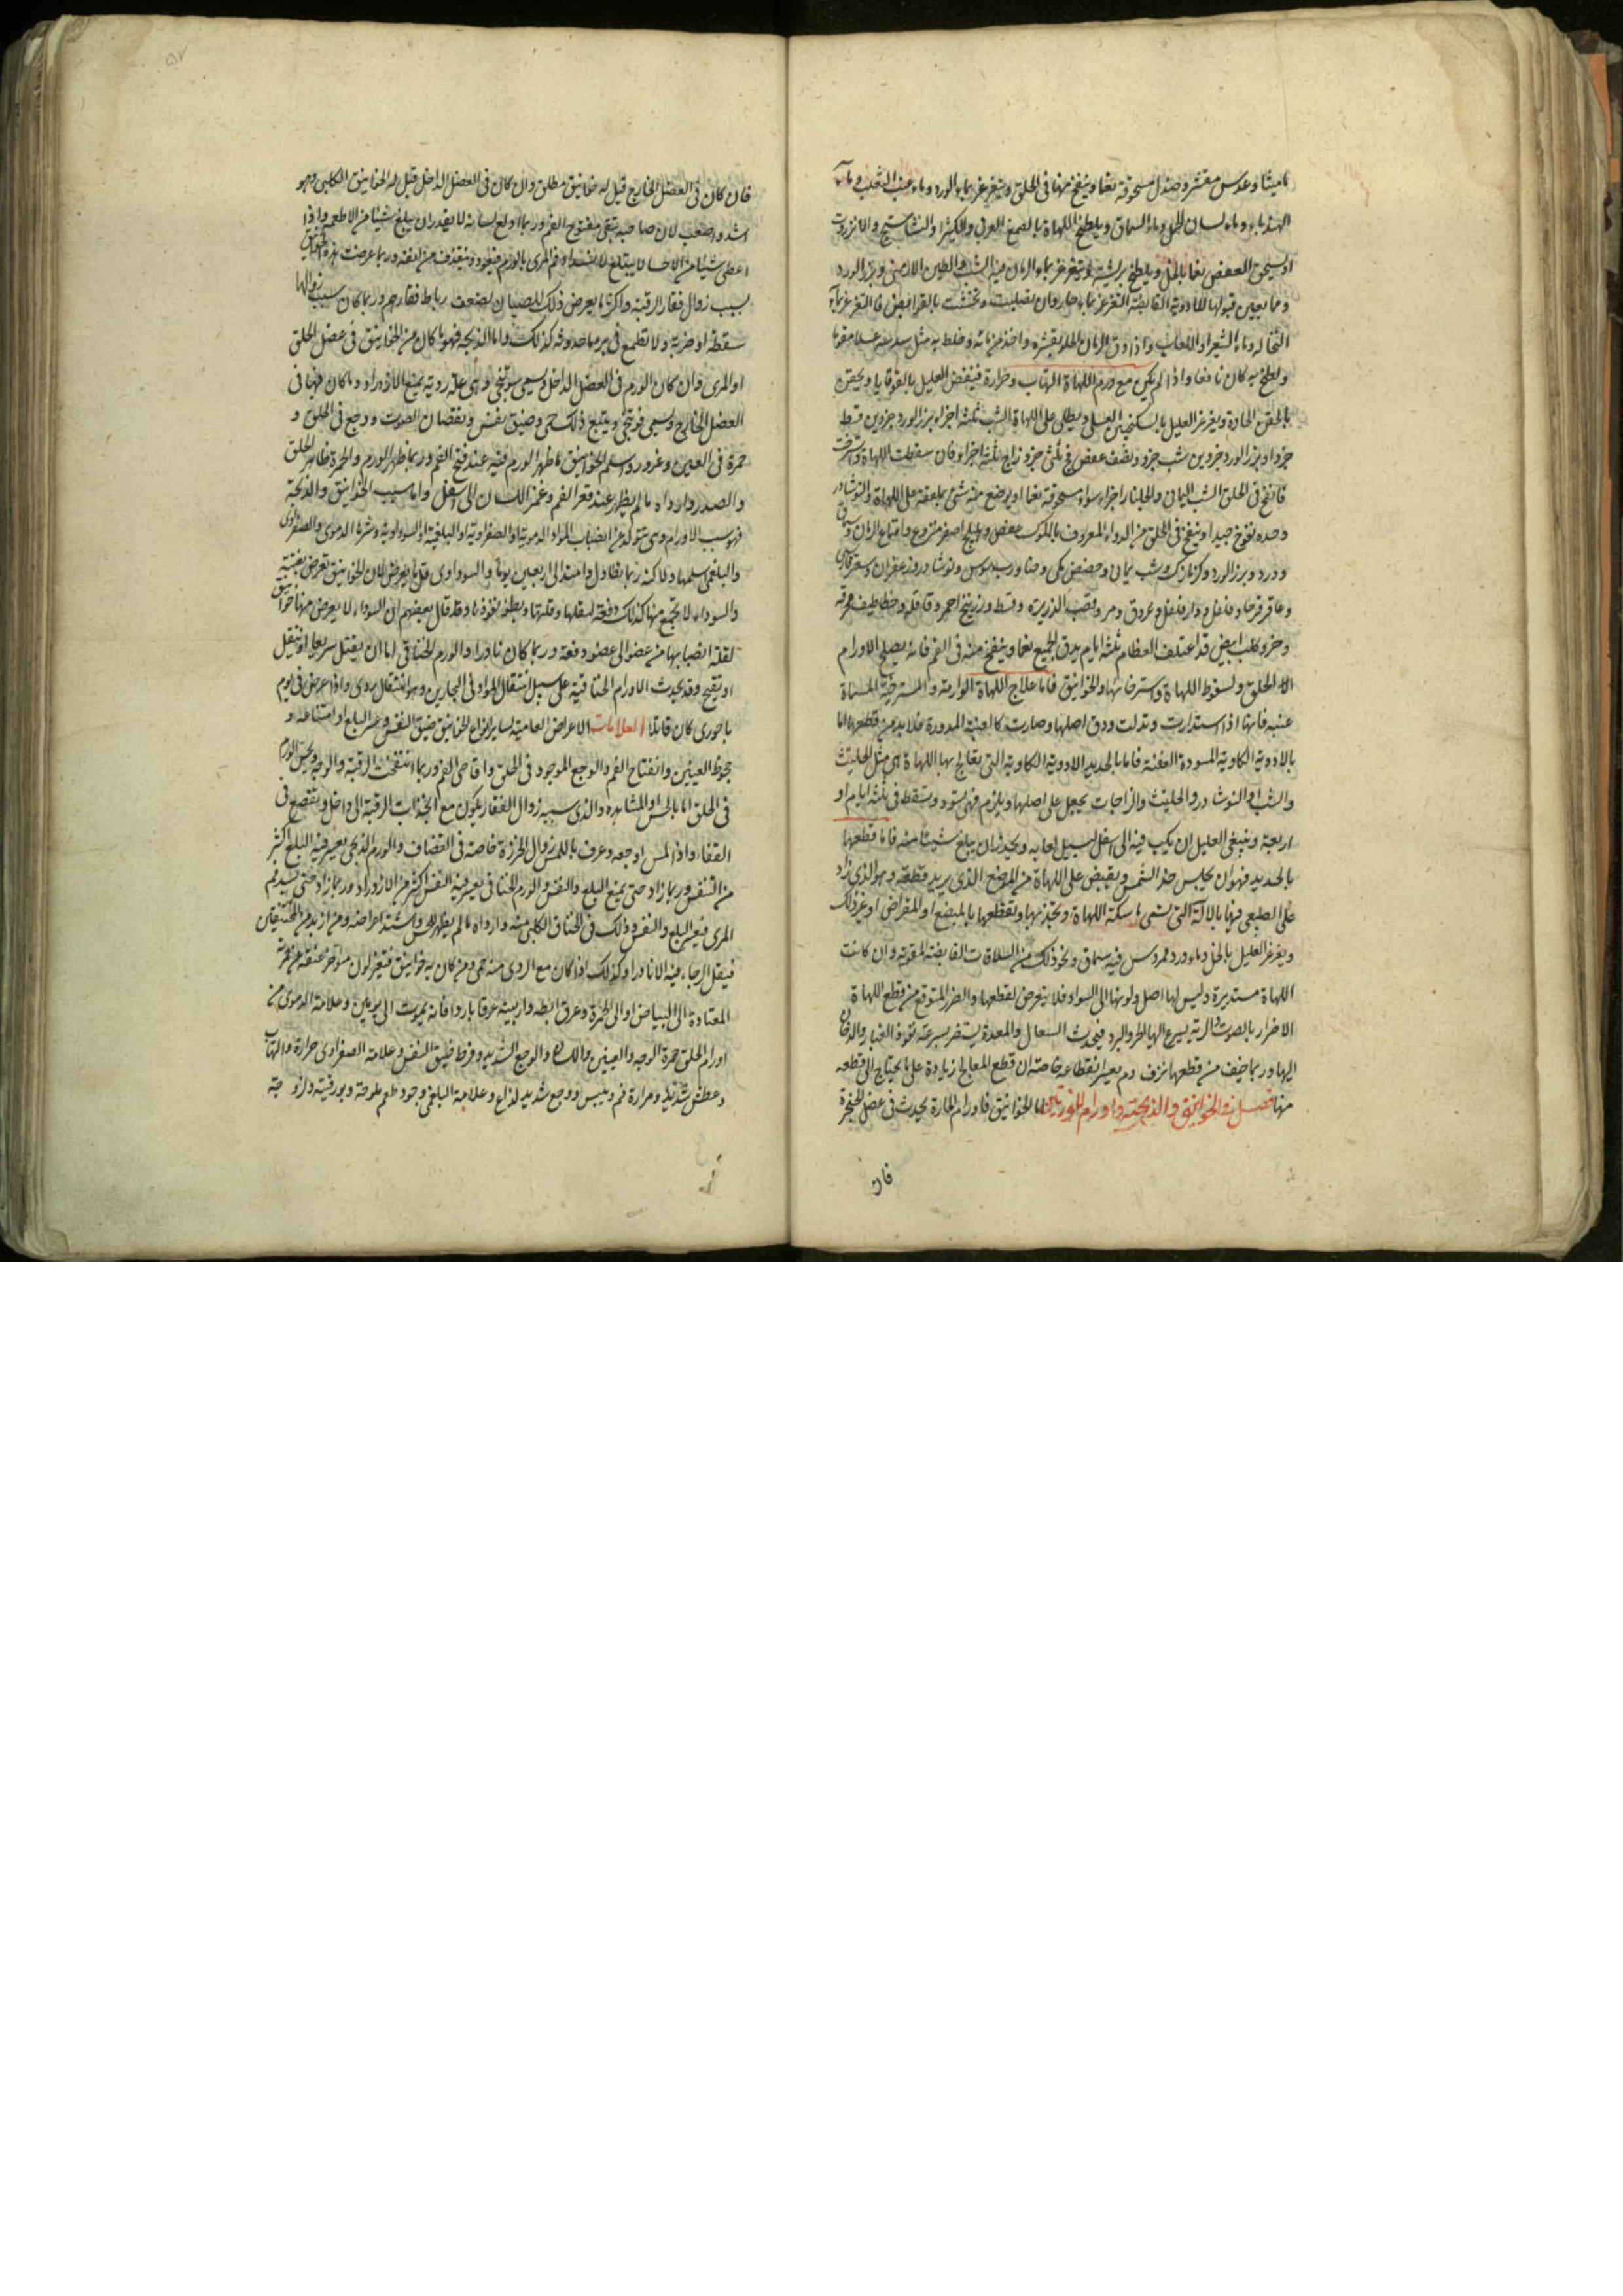 ماميثا وعدس مقشر وصندل مسحوقة نعما وينفخ منها فى الحلق ويتغرغر بماء الورد وماء عنب الثعلب وماء
الهندباء وماء لسان الحمل وماء السماق ويلطخ اللهاة بالصمغ العربى والكثيرا والنشاستج والانزروت
او يسحق العفص نعما بالخل ويلطخ بريشة ويتغرغر بماء الرمان فيه الشب والطين الارمنى وبزر الورد
ومما يعين قبولها للادوية القابضة التغرغر بماء حار وان تخشنت بالقوابض فالتغرغر بماء
النخالة وماء الشعير او الالعاب واذا دق الرمان الحلو بقشره واخذ من مائه وخلط به مثل سدسه عسلا مقوما
ولطخ به كان نافعا واذا لم يكن مع ورم اللهاة التهاب وحرارة فينقض العليل بالقوقايا ويحقن
بالحقن الحادة ويغرغر العليل بالسكنجبين العسلى ويطلى على اللهاة الشب ثلثة اجزاء بزر الورد جزوين قسط
جزوا وبزر الورد جزوين شب جزو ونصف عفص فج ثلثى جزو زاج ثلثة اجزاء فان سقطت اللهاة واسترخت
فانفخ فى الحلق الشب اليمانى والجلنار اجزاء سواء مسحوقة نعما او يوضع منه شئ بملعقة على اللهاة والنوشادر
وحده نفوخ جيد او ينفخ فى الحلق من الدواء المعروف بالملوك عفص وهليلج اصفر منزوع واقماع الرمان وسماق
وورد وبزر الورد وكزمازك وشب يمانى وحضض مكى ورب سوس ونوشادر وزعفران وسعتر فارسى
وعاقرقرحا وفلفل ودارفلفل وعروق ومر وقصب الذريرة وقسط وزرنيخ احمر وقاقلة وخطاطيف محرقة
وخرو كلب ابيض قد اعتلف العظام ثلثة ايام يدق الجميع نعما وينفخ منه فى الفم فانه يصلح لاورام
الحلق ولسقوط اللهاة واسترخائها والخوانيق فاما علاج اللهاة الوارمة والمسترخية المسماة
عنبه فانها اذا استدارت وتدلت ودق اصلها وصارت كالعنبة المدورة فلا بد من قطعها اما
بالادوية الكاوية المسودة العفنة فاما بالحديد الادوية الكاوية التى يعالج بها اللهاة هى مثل الحلتيث
والشب او النوشادر والحلتيث والزاجات يجعل على اصلها ويلزم فهى تسود وتسقط فى ثلثة ايام او
اربعة وينبغى للعليل ان يكب فيه الى اسفل ليسيل لعابه ويحذر ان يبلع شيئا منه فاما قطعها
بالحديد فهو ان يجلس حذا الشمس ويقبض على اللهاة من الموضع الذى يريد قطعه وهو الذى زاد
على الطبيعى فيها بالالة التى تسمى ماسكة اللهاة ويجذبها ويقطعها بالمبضع او المقراض او غير ذلك
ويغرغر العليل بالخل وماء ورد ممروس فيه سماق ونحو ذلك من السلاقات القابضة المقوية وان كانت
اللهاة مستديرة وليس لها اصل ولونها الى السواد فلا يتعرض لقطعها والضرر المتوقع من قطع اللهاة
الاضرار بالصوت والرئة يسرع اليها الحر والبرد فيحدث السعال والمعدة يستضر بسرعة نفوذ الغبار والدخان
اليها وربما خيف من قطعها نزف دم يعسر انقطاعه خاصة ان قطع المعالج زيادة على ما يحتاج الى قطعه
منها فصل فى الخوانيق والذبحة واورام اللوزتين اما الخوانيق فاورام حارة يحدث فى عضل الحنجرة
فان
فان كان فى العضل الخارج قيل له خوانيق مطلق وان كان فى العضل الداخل قيل له الخوانيق الكلبى وهو
اشد واصعب لان صاحبه يبقى مفتوح الفم وربما ادلع لسانه لا يقدر ان يبلع شيئا من الاطعمة واذا
اعطى شيئا من الاحسا لا يبتلع لانسداد فم المرى بالورم فيعود وينقذف من انفه وربما عرضت هذه الخوانيق
بسبب زوال فقار الرقبة واكثر ما يعرض ذلك للصبيان لضعف رباط فقارهم وربما كان سبب زوالها
سقطة او ضربة ولا تطمع فى برء ما حدوثه كذلك واما الذبحة فهو ما كان من الخوانيق فى عضل الحلق
او المرى وان كان الورم فى العضل الداخل وهى علة ردية يمنع الازدراد وما كان فيها فى
العضل الخارج ويتبع ذلك حمى وضيق نفس ونقصان الصوت ووجع فى الحلق و
حمرة فى العين وغرور واسلم الخوانيق ما ظهر الورم فيه عند فتح الفم وربما ظهر الورم والحمرة ظاهر الحلق
والصدر واردا ما لم يظهر عند فغر الفم وغمز اللسان الى اسفل واما سبب الخوانيق والذبحة
فهو سبب الاورام وهى يتولد عن انصباب المواد الدموية او الصفراوية او البلغمية او السوداوية وشرها الدموى والصفراوى
والبلغمى اسلمها ولاكنه ربما تطاول وامتد الى اربعين يوما والسوداوى قل ما يعرض لان الخوانيق تعرض بغتة
والسوداء لا يجتمع منها كذلك دفعة لثقلها وقلتها وبطو نفوذها وقد قال بعضهم ان السوداء لا يعرض منها خوانيق
لقلة انصبابها من عضو الى عضو دفعة وربما كان نادرا والورم الخناقى اما ان يقتل سريعا او ينتقل
او يقيح وقد يحدث الاورام الخناقية على سبيل انتقال المواد فى البحارين وهو انتقال ردى واذا عرض فى يوم
باحورى كان قاتلا العلامات الاعراض العامية لساير انواع الخوانيق ضيق النفس وعسر البلع او امتناعه و
جحوظ العينين وانفتاح الفم والوجع الموجود فى الحلق واقاصى الفم وربما انتفخت الرقبة والوجه ويحس الورم
فى الحلق اما بالحس او المشاهدة والذى سببه زوال الفقار يكون مع انجذاب الرقبة الى داخل وتقصع فى
القفا واذا لمس اوجعه وعرف باللمس زوال الخرزة خاصة فى القضاف والورم الذبحى يعسر فيه البلع اكثر
من التنفس وربما زاد حتى يمنع البلع والنفس والورم الخناقى يعسر فيه النفس اكثر من الازدراد وربما زاد حتى يسد فم
المرى فيعسر البلع والنفس وذلك فى الخناق الكلبى منه وارداه ما لم يظهر للحس واشتد اعراضه ومن ازبد من المختنقين
فيقل الرجاء فيه الا نادرا وكذلك اذا كان مع الردى منه حمى ومن كان به خوانيق فتغير لون مؤخر عنقه عن حمرته
المعتادة الى البياض او الى الخضرة وعرق ابطه واربيته عرقا باردا فانه يموت الى يومين وعلامة الدموى من
اورام الحلق حمرة الوجه والعينين واللسان والوجع الشديد وفرط ضيق النفس وعلامة الصفراوى حرارة والتهاب
وعطش شديد ومرارة فم ويبس ووجع شديد لذاع وعلامة البلغمى وجود طعم ملوحة وبورقية ولزوجة